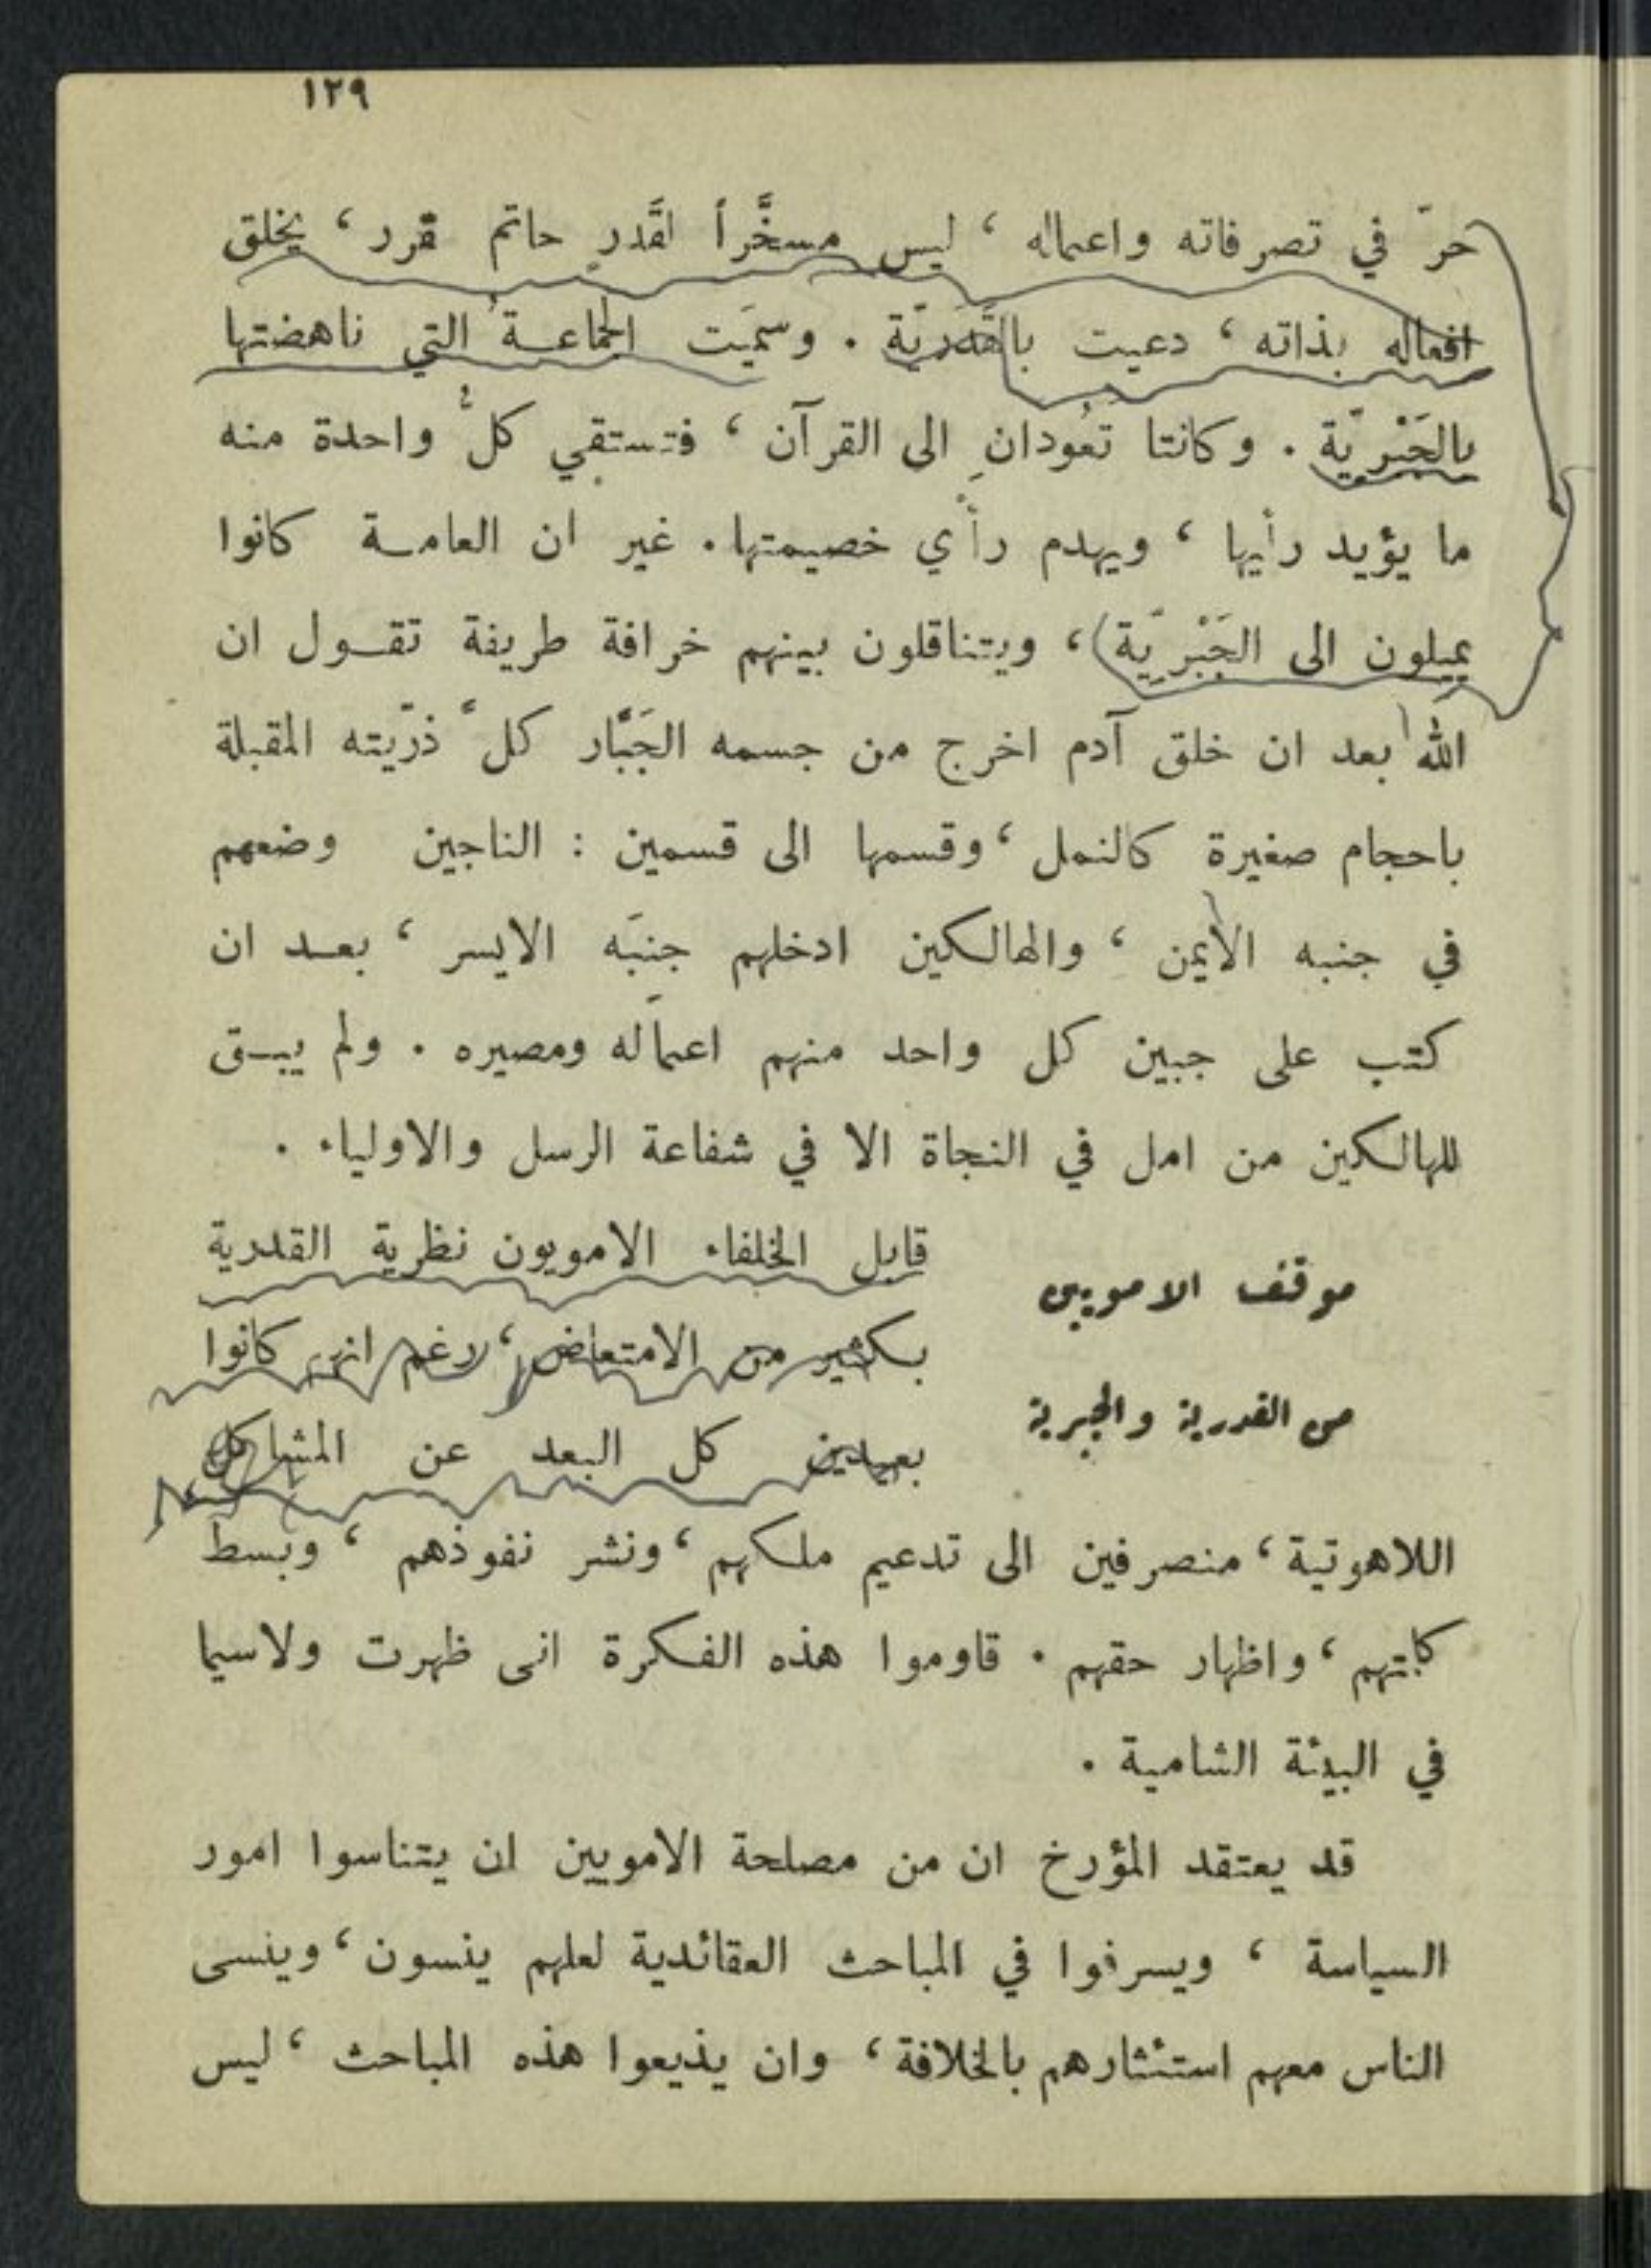 ١٢٩
حرّ في تصرفاته واعماله ، ليس مسخَّراً لقَدرٍ حاتم قرر ، يخلق
افعاله بذاته ، دعيت بالقَدَريّة . وسمّيَت الجماعـةُ التي ناهضتها
بالجَبْريّة . وكانتا تعُودانِ الى القرآن ، فتستقي كلُّ واحدة منه
ما يؤيد رأيها ، ويهدم رأْي خصيمتها . غير ان العامـة كانوا
يميلون الى الجَبْريّة)، ويتناقلون بينهم خرافة طريفة تقـول ان
الله بعد ان خلق آدم اخرج من جسمه الجَبَّار كلَّ ذرّيته المقبلة
باحجام صغيرة كالنمل ، وقسمها الى قسمين : الناجين وضعهم
في جنبه الأيمن ، والهالكين ادخلهم جنبَه الايسر ، بعـد ان
كتب على جبين كل واحد منهم اعمالَه ومصيره . ولم يبـق
للهالكين من امل في النجاة الا في شفاعة الرسل والاولياء .
موقف الامويين
من القدرية والجبرية
قابل الخلفاء الامويون نظرية القدرية
بكثير من الامتعاض ، رغم انهم كانوا
بعيدين كل البعد عن المشاكل
اللاهوتية ، منصرفين الى تدعيم ملكهم ، ونشر نفوذهم ، وبسط
كلمتهم ، واظهار حقهم . قاوموا هذه الفكرة انى ظهرت ولاسيما
في البيئة الشامية .
قد يعتقد المؤرخ ان من مصلحة الامويين ان يتناسوا امور
السياسة ، ويسرفوا في المباحث العقائدية لعلهم ينسون ، وينسى
الناس معهم استئثارهم بالخلافة ، وان يذيعوا هذه المباحث ، ليس